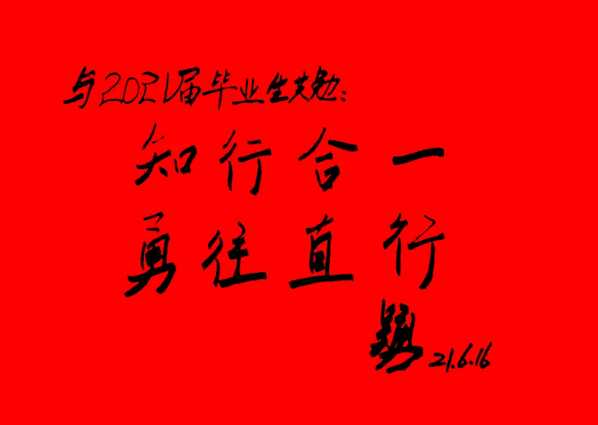 与2021届毕业生共勉:
知行合一
勇往直行
21.6.16